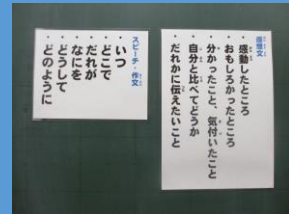 感想文
・感動したところ
・おもしろかったところ
・分かったこと、気付いたこと
・自分と比べてどうか
・だれかに伝えたいこと
スピーチ・作文
・いつ
・どこで
・だれが
・なにを
・どうして
・どのように